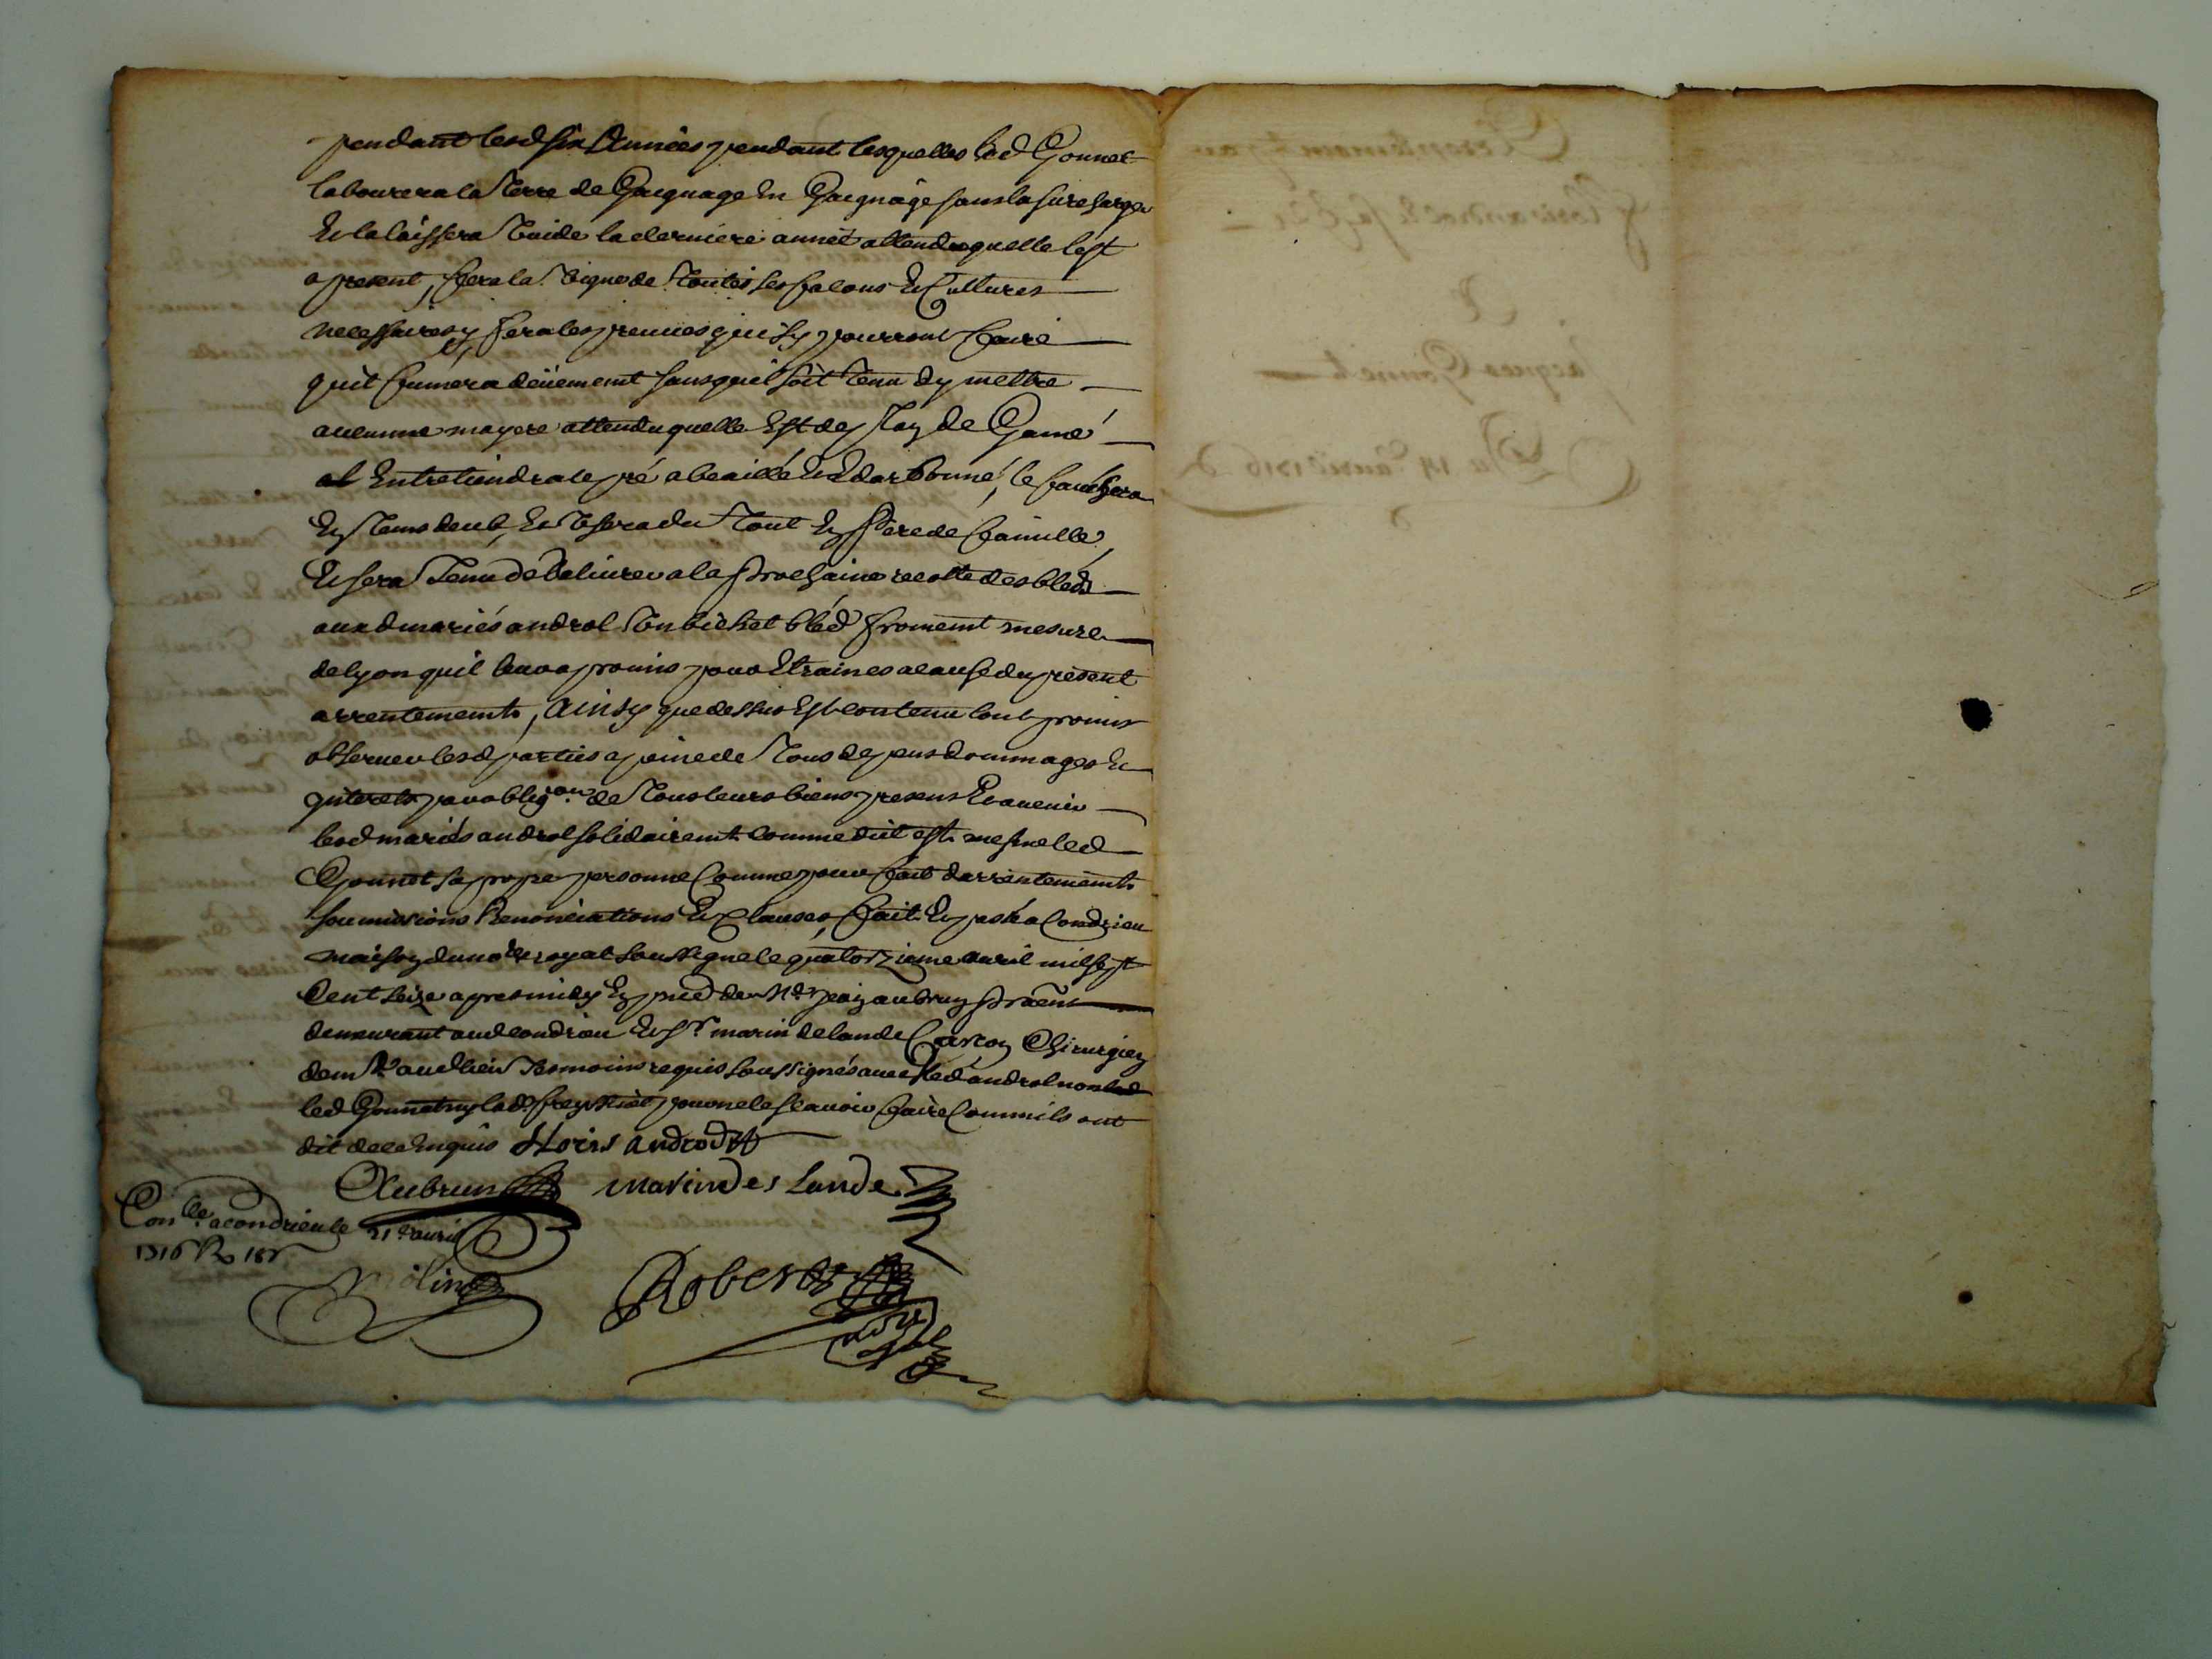 pendant lesd six années pendant lesquelles led Gonnet
labourera la terre de Gaignage en Gaignage sans la surcharger
et la laissera vuide la derniere année attendu quelle lest
a present, fera la vigne de toutes ses façons et cultures
necessaires y fera les preuves qui sy pourront faire
quil fumera deüement sans quil soit tenu dy mettre
aucunne mayere attendu quelle est de
entretiendra le pré le fauchera
en tems deub, et usera du tout en pere de famille,
et sera tenu de delivrer a la prochaine recolte des bleds
auxd mariés androl un bichet bled froment mesure
de lyon quil leur a promis pour Etraines a cause du present
arrentement, ainsy que dessus est contenu lont promis
observer lesd parties a peine de tous depens dommages et
interets par obligaon de tous leurs biens presens et avenir
lesd mariés androl solidairemt comme dit est mesme led
Gonnet sa propre personne comme pour fait darrentement
soumissions Renonciations et clauses, fait et passé a Condrieu
maison du nore royal soussigné le quatorzieme avril mil sept
cent seize apres midy en pnce de Me jean aubrun
demeurant aud condrieu et sr marin delande garçon Chirurgien
demt aud lieu temoins requis soussignés avec led androl non
led Gonnet ny lad pour ne le scavoir faire comm ils ont
dit de ce enquis androd
Aubrun marin des Lande
Conlé a condrieu le 21e avril
1716 R 18s
Molin
Robert
Jacques Gonnet
Du 14e avril 1716